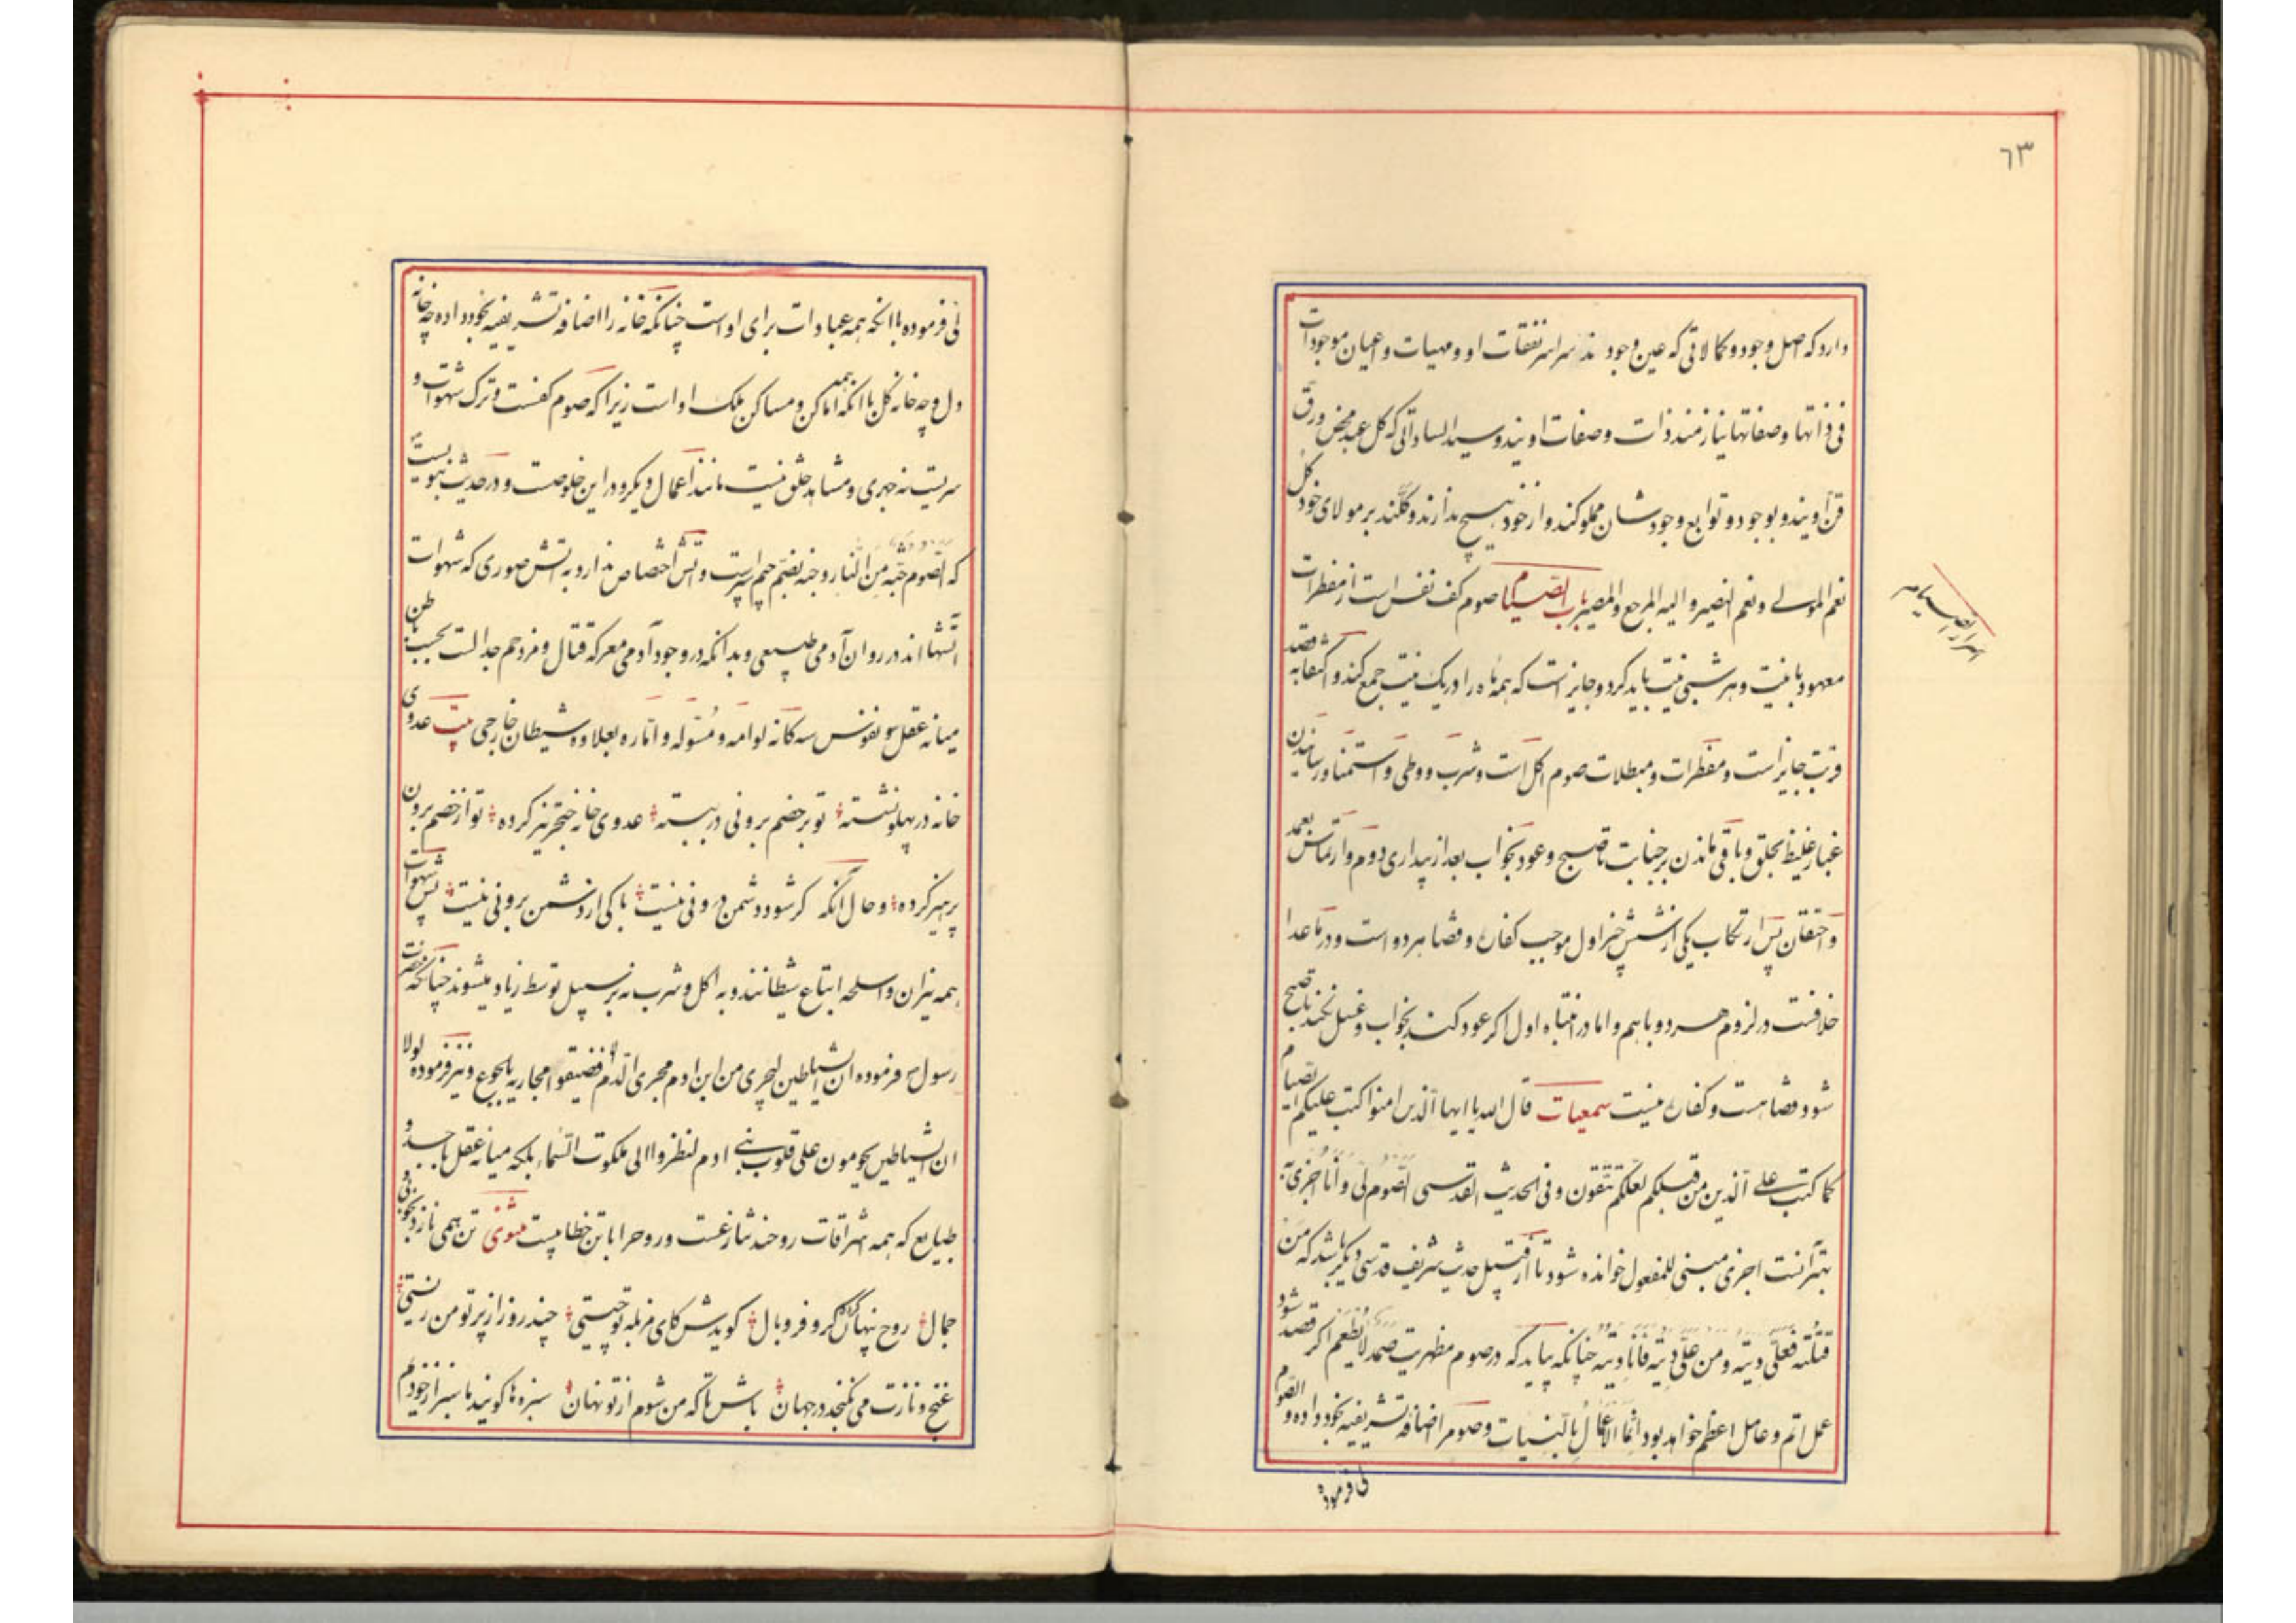 ٦٣
دارد که اصل وجود و کمالاتی که عین وجودند سراسر نفقات او و مهیات و اعیان موجودات
فی ذاتها و صفاتها نیازمند ذات و صفات اویند و سید الساداتی که کل عبد محض ورق
قن اویند و بوجود و توابع وجودشان مملوکند و از خود هیچ ندارند و کلند بر مولای خود کل
نعم المولی و نعم النصیر و الیه المرجع و المصیر باب الصیام صوم کف نفس است از مفطرات
اسرار الصیام
معهود با نیت و هر شبی نیت باید کرد و جایز است که همه ماه را در یک نیت جمع کند و اکتفا به قصد
قربت جایز است و مفطرات و مبطلات صوم اکل است و شرب و وطی و استمنا و رسانیدن
غبار غلیظ بحلق و باقی ماندن بر جنابت تا صبح و عود بخواب بعد از بیداری دوم و ارتماس بعمد
و احتقان پس ارتکاب یکی از شش چیز اول موجب کفاره و قضا هر دو است و در ماعدا
خلافست در لزوم هر دو با هم و اما در انتباه اول اکر عود کند بخواب و غسل نکند تا صبح
شود قضا هست و کفاره نیست سمعیات قال الله یا ایها الذین امنوا کتب علیکم الصیام
کما کتب علی الذین من قبلکم لعلکم تتقون و فی الحدیث القدسی الصوم لی و انا اجزی به
بهتر آنست اجزی مبنی للمفعول خوانده شود تا از قبیل حدیث شریف قدسی دیکر باشد که من
قتلته فعلی دیته و من علی دیته فانا دیته چنانکه بیاید که در صوم مظهریت صمد لا یطعم اکر قصد شود
عمل اتم و عامل اعظم خواهد بود انما الاعمال بالنیات و صوم را اضافه تشریفیه بخود داده و الصوم
لی فرموده
لی فرموده با آنکه همه عبادات برای او است چنانکه خانه را اضافه تشریفیه بخود داده چه خانه
دل و چه خانه کل با آنکه همه اماکن و مساکن ملک او است زیرا که صوم کفست و ترک شهوات و
سریست نه جهری و مشاهد خلق نیست مانند اعمال دیکر و در این خلوصت و در حدیث نبویست
که الصوم جنه من النار و جنه بضم جیم سپر است و آتش اختصاص ندارد به آتش صوری که شهوات
آتشها اند در روان آدمی طبیعی و بدانکه در وجود آدمی معرکه قتال و مزدحم جدالست بحسب باطن
میانه عقل و نفوس سه کانه لوامه و مسوله و اماره بعلاوه شیطان خارجی بیت عدوی
خانه در پهلو نشسته تو بر خصم برونی در ببسته عدوی خانه خنجر تیز کرده تو از خصم برون
پرهیز کرده و حال آنکه کر شود دشمن درونی نیست باکی از دشمن برونی نیست پس شهوات
همه نیران و اسلحه اتباع شیطانند و به اکل و شرب نه بر سبیل توسط زیاد میشوند چنانکه حضرت
رسول ص فرموده ان الشیاطین لیجری من ابن ادم مجری الدم فضیقوا مجاریه بالجوع و نیز فرموده لولا
ان الشیاطین یحومون علی قلوب بنی ادم لنظروا الی ملکوت السماء بلکه میانه عقل با جسد و
طبایع که همه اشراقات روحند تنازعست و روح را با تن خطابیست مثنوی تن همی نازد بخوبی و
جمال روح پنهان کرده کر و فر و بال کویدش کای مزبله تو چیستی چند روز از پرتو من زیستی
غنج و نازت می نکنجد در جهان باش تا که من شوم از تو نهان سبزه ها کویند ما سبز از خودیم